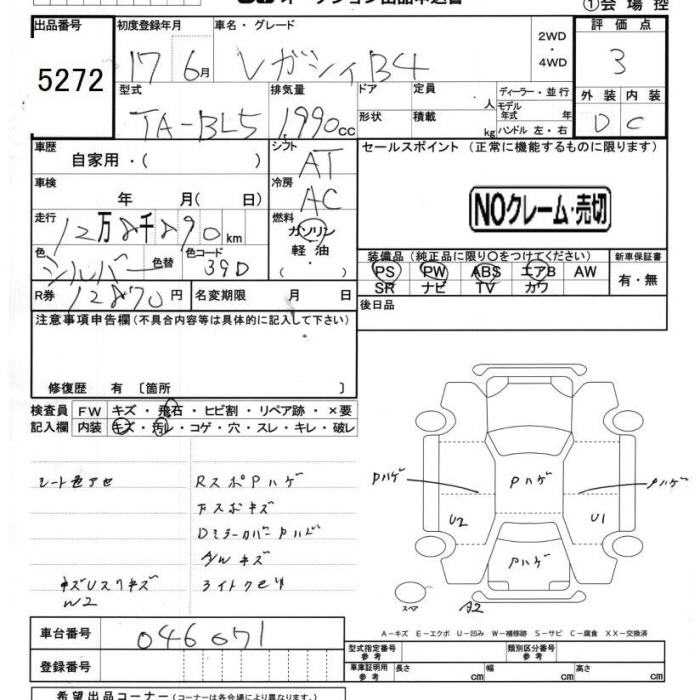 ①会場控
出品番号
5272
初度登録年月
17 6月
車名・グレード
レガシィB4
2WD
・
4WD
評価点
3
型式
TA-BL5
排気量
1,990cc
ドア
定員
人
ディーラー・並行
モデル年式 年
形状
積載
kg
ハンドル 左・右
外装 内装
D C
車歴
自家用・( )
シフト
AT
セールスポイント (正常に機能するものに限ります)
車検
年 月( 日)
冷房
AC
NOクレーム・売切
走行
12万8千890km
燃料
ガソリン
軽油
・
色
シルバー
色替
色コード
39D
装備品 (純正品に限り○をつけてください)
新車保証書
PS PW ABS エアB AW
SR ナビ TV カワ
有・無
R券 12870円
名変期限 月 日
後日品
注意事項申告欄 (不具合内容等は具体的に記入して下さい)
修復歴 有〔箇所 〕
検査員 FW キズ・飛石・ヒビ割・リペア跡・×要
記入欄 内装 キズ・汚レ・コゲ・穴・スレ・キレ・破レ
シート色アセ
RスポPハゲ
Fスポキズ
DミラーカバーPハゲ
A/Wキズ
W2
Pハゲ
Pハゲ
Pハゲ
U2
U1
Pハゲ
スペア
A2
車台番号
046071
登録番号
A-キズ E-エクボ U-凹み W-補修跡 S-サビ C-腐食 XX-交換済
型式指定番号 参考
類別区分番号 参考
車庫証明用 参考
長さ cm
幅 cm
高さ cm
希望出品コーナー(コーナーは各会場により異なります。)